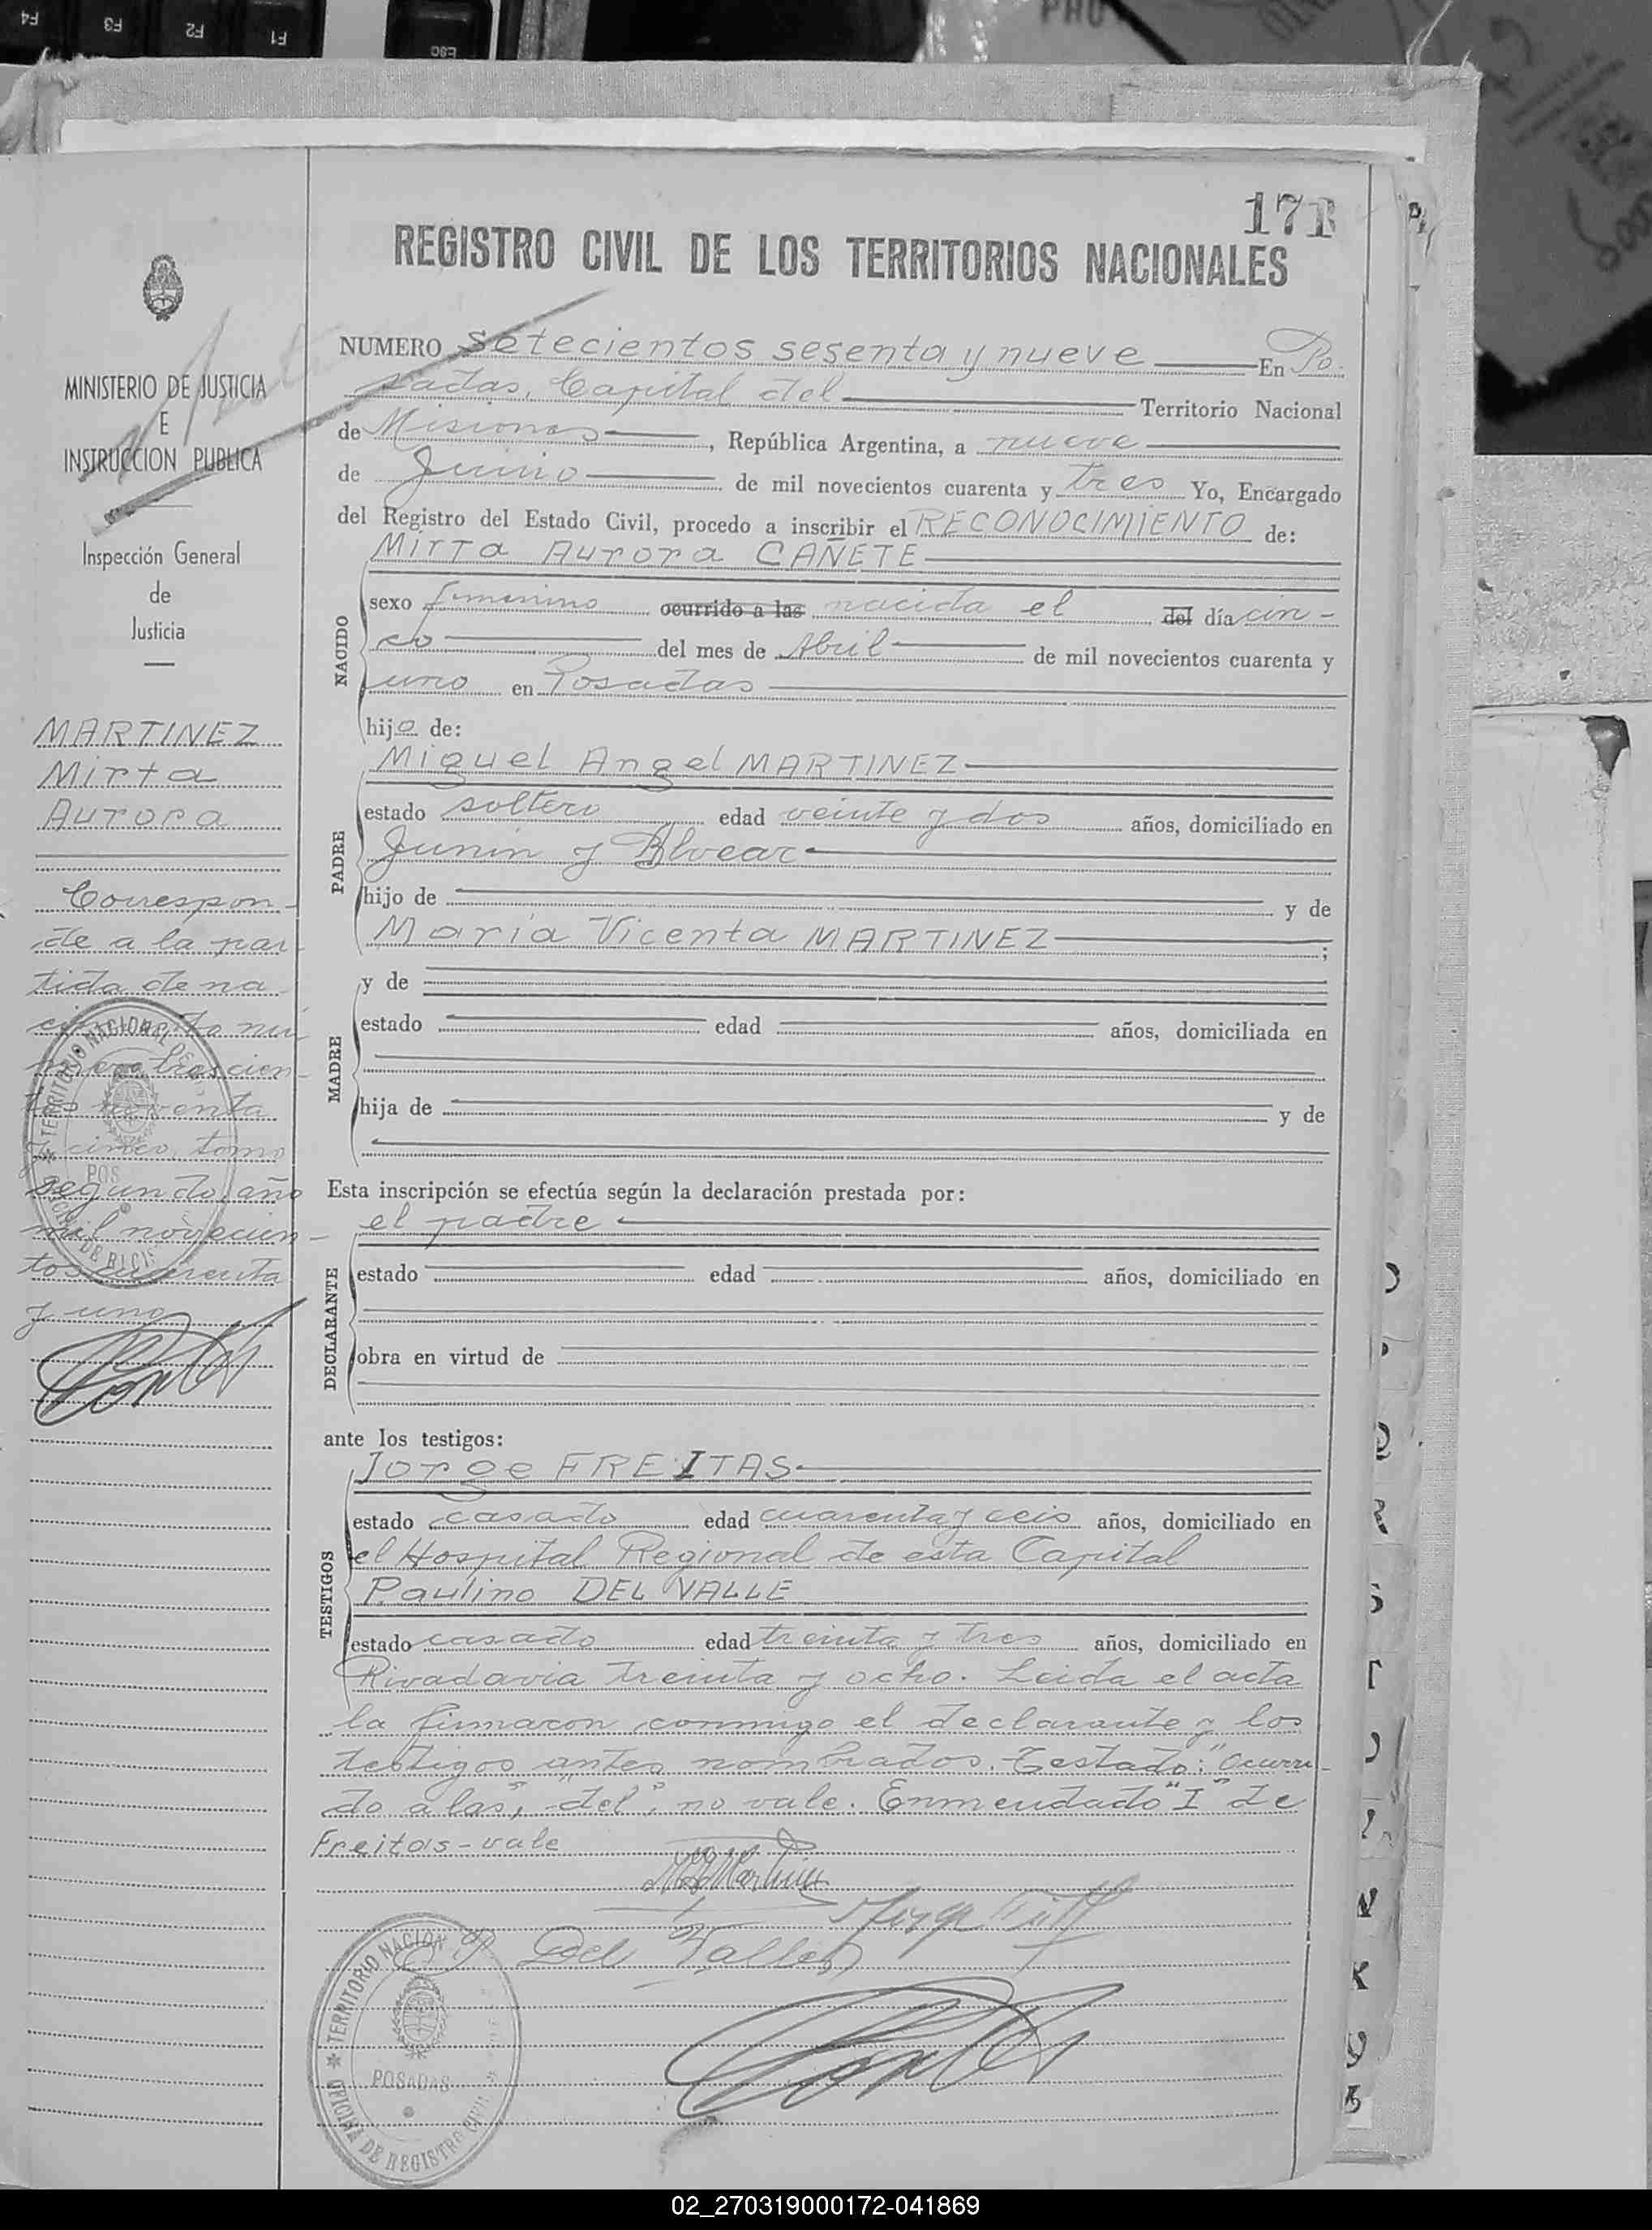 F4 F3 F2 F1 ESC
171
REGISTRO CIVIL DE LOS TERRITORIOS NACIONALES
NUMERO Setecientos sesenta y nueve En Po-
sadas, Capital del Territorio Nacional
de Misiones, República Argentina, a nueve
de Junio de mil novecientos cuarenta y tres Yo, Encargado
del Registro del Estado Civil, procedo a inscribir el RECONOCIMIENTO de:
Mirta Aurora CAÑETE
NACIDO
sexo femenino ocurrido a las nacida el del día cin-
co del mes de Abril de mil novecientos cuarenta y
uno en Posadas
hija de:
PADRE
Miguel Angel MARTINEZ
estado soltero edad veinte y dos años, domiciliado en
Junin y Alvear
hijo de y de
Maria Vicenta MARTINEZ ;
MADRE
y de
estado edad años, domiciliada en
hija de y de
Esta inscripción se efectúa según la declaración prestada por:
el padre
DECLARANTE
estado edad años, domiciliado en
obra en virtud de
ante los testigos:
TESTIGOS
Jorge FREITAS
estado casado edad cuarenta y ceis años, domiciliado en
el Hospital Regional de esta Capital
Paulino DEL VALLE
estado casado edad treinta y tres años, domiciliado en
Rivadavia treinta y ocho. Leida el acta
la firmaron conmigo el declarante y los
testigos antes nombrados. Testado: "Ocurri-
do a las", "del", no vale. Enmendado "I" de
Freitas-vale
P Del Valle
OFICINA DE REGISTRO CIVIL TERRITORIO NACIONAL
POSADAS
MINISTERIO DE JUSTICIA
E
INSTRUCCION PUBLICA
Inspección General
de
Justicia
MARTINEZ
Mirta
Aurora
Correspon-
de a la par-
tida de na-
cimiento nú-
mero trescien-
tos noventa
y cinco, tomo
segundo, año
mil novecien-
tos cuarenta
y uno
TERRITORIO NACIONAL
02_270319000172-041869